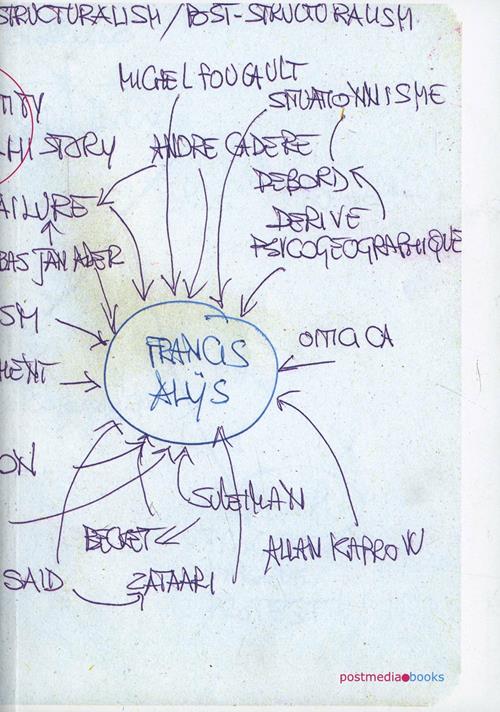 STRUCTURALISM / POST-STRUCTURALISM
MICHEL FOUCAULT
SITUATIONNISME
TITY
HISTORY
ANDRE CADERE
DEBORD
AILURE
DERIVE
PSICOGEOGRAPHIQUE
BAS JAN ADER
SM
OITICICA
FRANCIS
ALŸS
MENT
ON
SULEIMAN
BECKET
ALLAN KAPROW
SAID
ZATAARI
postmedia books